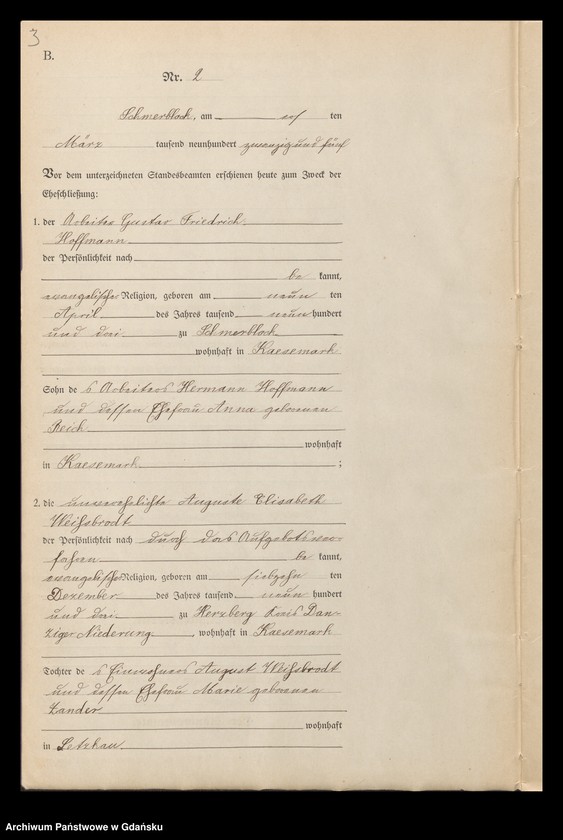 3
B.
Nr. 2
Schmerblock, am elf ten
März tausend neunhundert zwanzig und fünf
Vor dem unterzeichneten Standesbeamten erschienen heute zum Zweck der
Eheschließung:
1. der Arbeiter Gustav Friedrich
Hoffmann
der Persönlichkeit nach
be kannt,
evangelischer Religion, geboren am neun ten
April des Jahres tausend neun hundert
und drei zu Schmerblock
wohnhaft in Kaesemark
Sohn de s Arbeiters Hermann Hoffmann
und dessen Ehefrau Anna geborenen
Reich
wohnhaft
in Kaesemark ;
2. die unverehelichte Auguste Elisabeth
Weißbrodt
der Persönlichkeit nach durch das Aufgebotsver-
fahren be kannt,
evangelischer Religion, geboren am siebzehn ten
Dezember des Jahres tausend neun hundert
und drei zu Herzberg Kreis Dan-
ziger Niederung, wohnhaft in Kaesemark
Tochter de s Einwohners August Weißbrodt
und dessen Ehefrau Marie geborenen
Zander
wohnhaft
in Letzkau
Archiwum Państwowe w Gdańsku